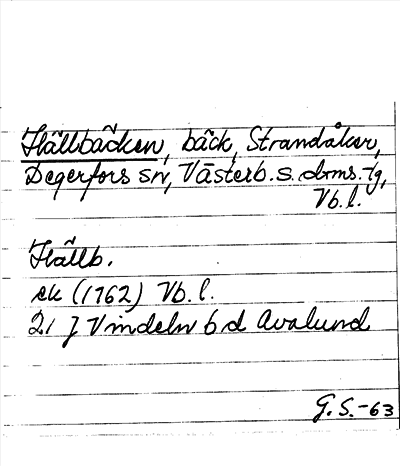 Hällbäcken, bäck, Strandåker,
Degerfors sn, Västerb. s. dms. tg,
Vb. l.
Hällb.
ek (1762) Vb. l.
21 J Vindeln 6 d Avalund
G. S. -63